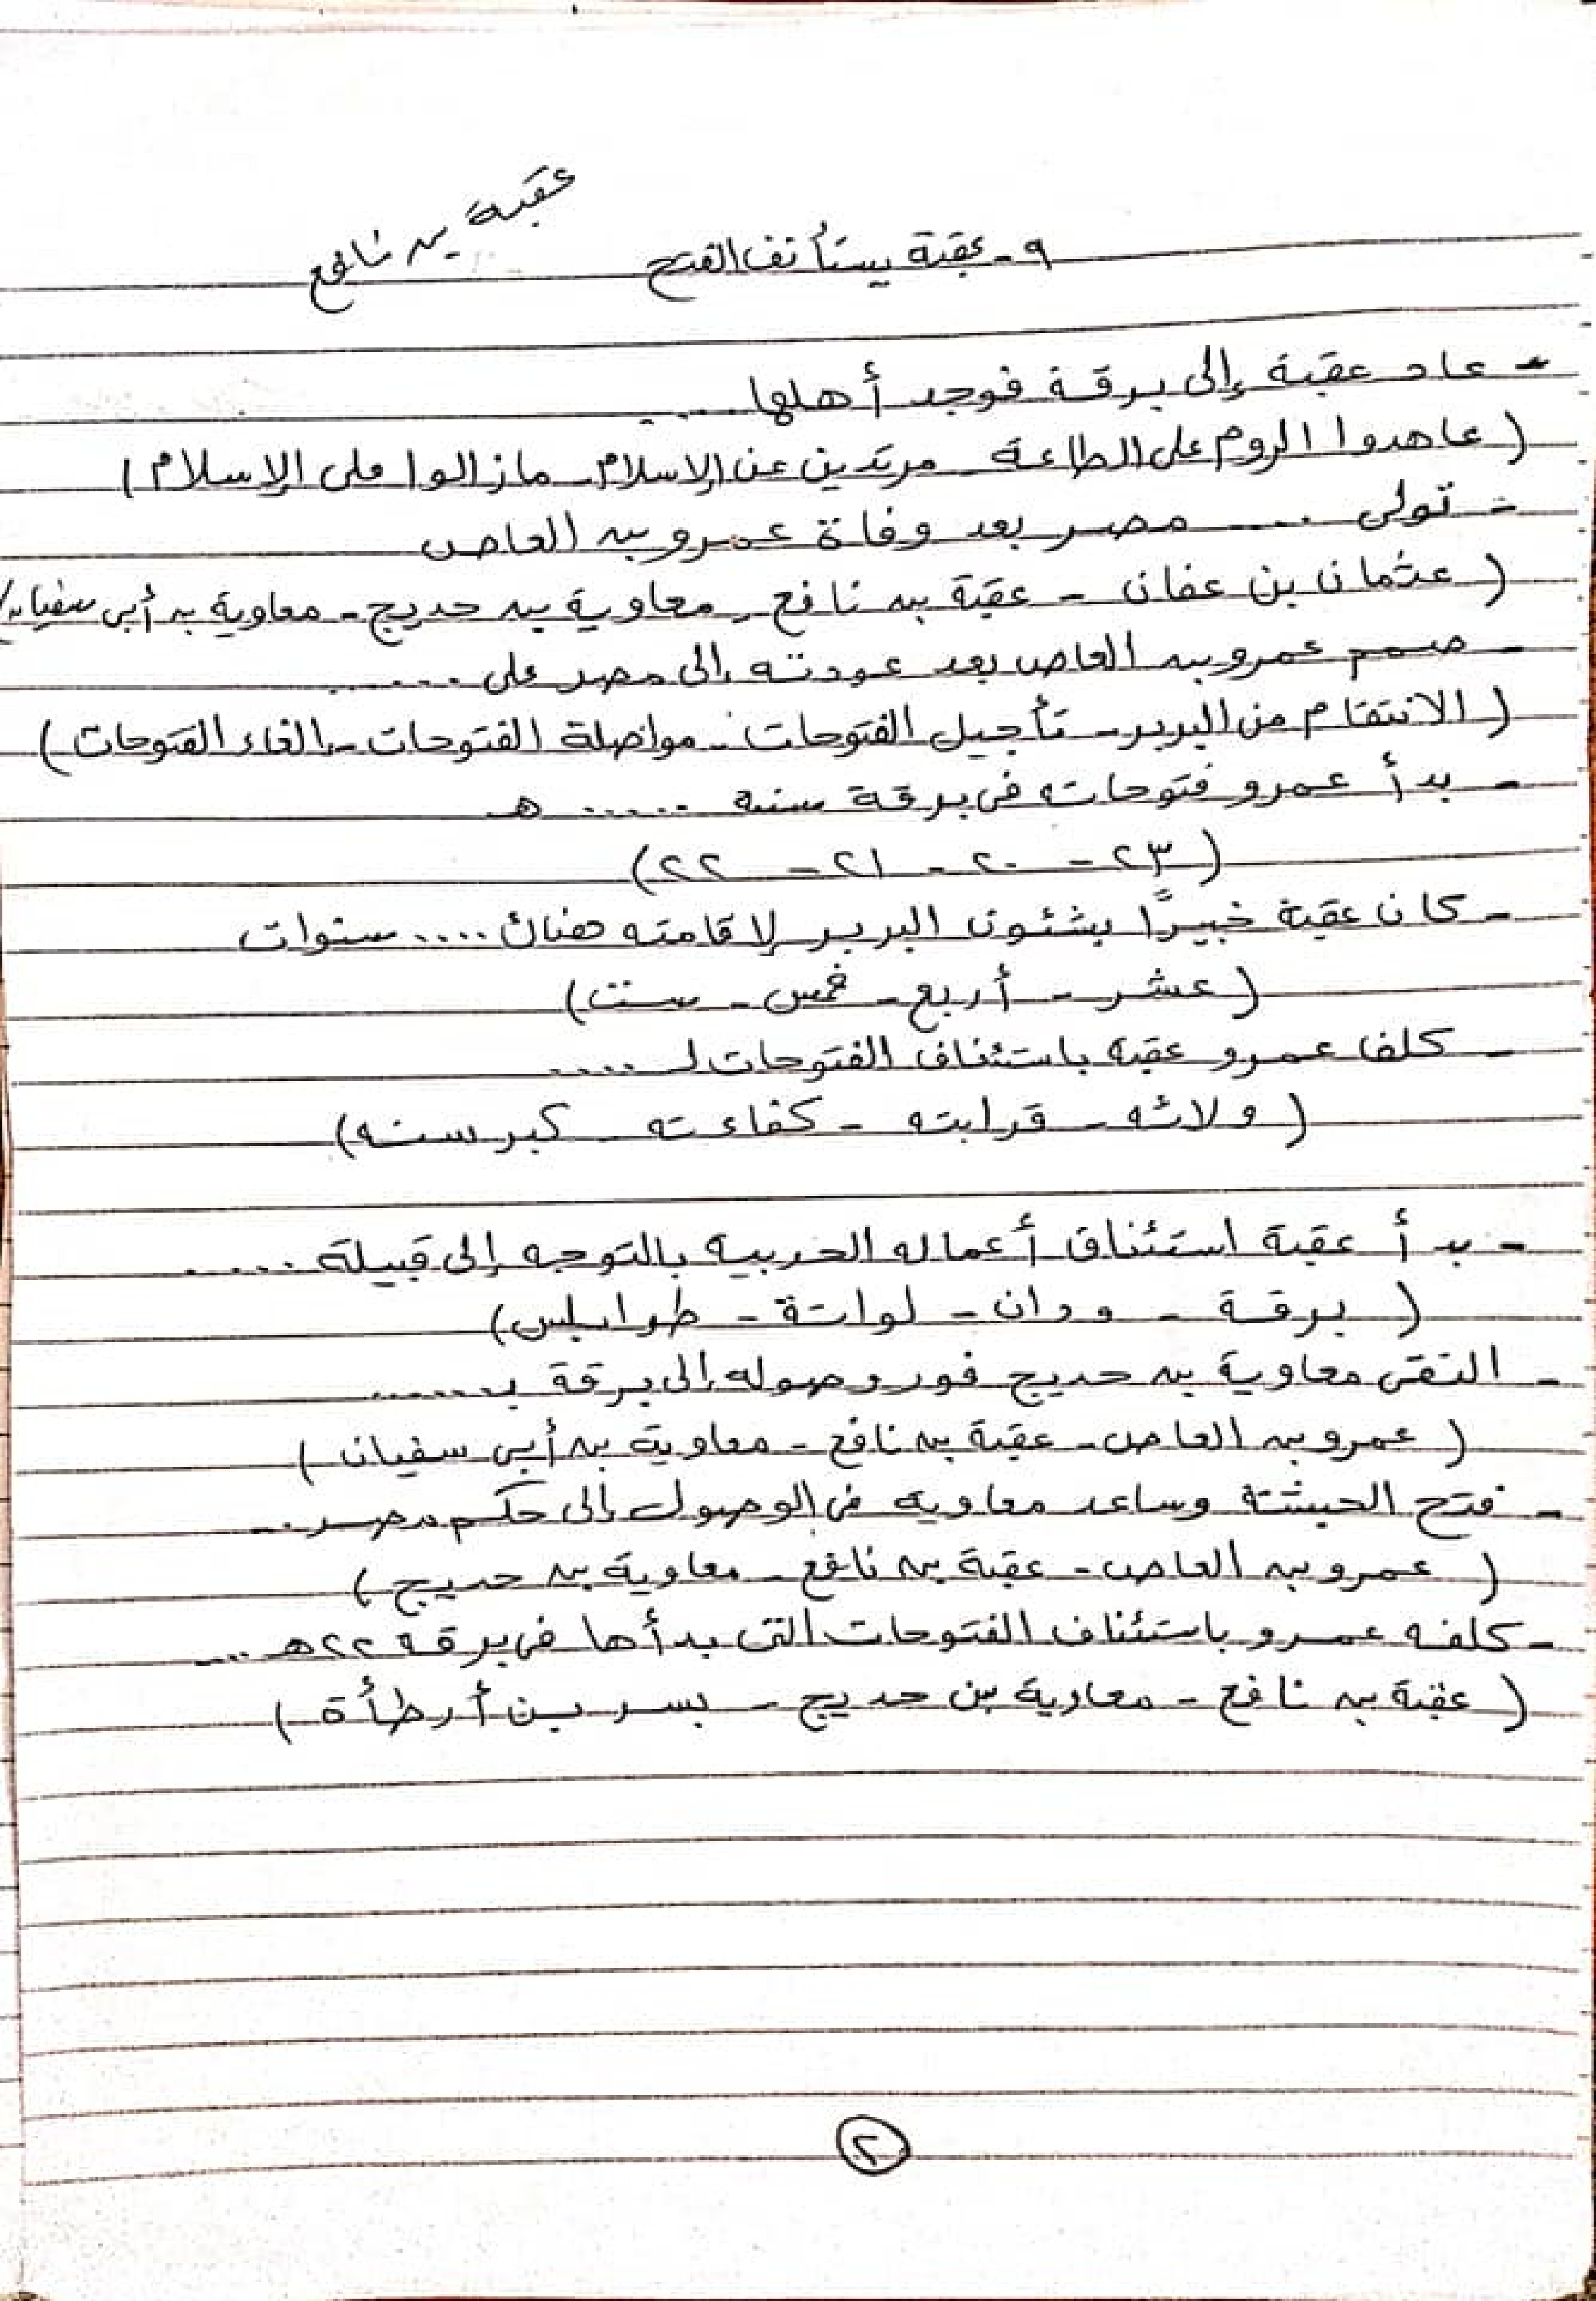 عقبة بن نافع
٩- عقبة يستأنف الفتح
- عاد عقبة إلى برقة فوجد أهلها .....
( عاهدوا الروم على الطاعة - مرتدين عن الإسلام - مازالوا على الإسلام )
- تولى .... مصر بعد وفاة عمرو بن العاص
( عثمان بن عفان - عقبة بن نافع - معاوية بن حديج - معاوية بن أبى سفيان )
- صمم عمرو بن العاص بعد عودته إلى مصر على .....
( الانتقام من البربر - تأجيل الفتوحات - مواصلة الفتوحات - إلغاء الفتوحات )
- بدأ عمرو فتوحاته فى برقة سنه ..... هـ
( ٢٣ - ٢٠ - ٢١ - ٢٢ )
- كان عقبة خبيرًا بشئون البربر لاقامته هناك .... سنوات
( عشر - أربع - خمس - ست )
- كلف عمرو عقبه باستئناف الفتوحات لـ .....
( ولائه - قرابته - كفاءته - كبر سنه )
- بدأ عقبة استئناف أعماله الحربيه بالتوجه إلى قبيلة .....
( برقة - ودان - لواتة - طرابلس )
- التقى معاوية بن حديج فور وصوله إلى برقة بـ ......
( عمرو بن العاص - عقبة بن نافع - معاوية بن أبي سفيان )
- فتح الحبشة وساعد معاويه فى الوصول إلى حكم مصر ...
( عمرو بن العاص - عقبة بن نافع - معاوية بن حديج )
- كلفه عمرو باستئناف الفتوحات التى بدأها فى برقه ٢٢هـ ....
( عقبة بن نافع - معاوية بن حديج - بسر بن أرطأة )
٢